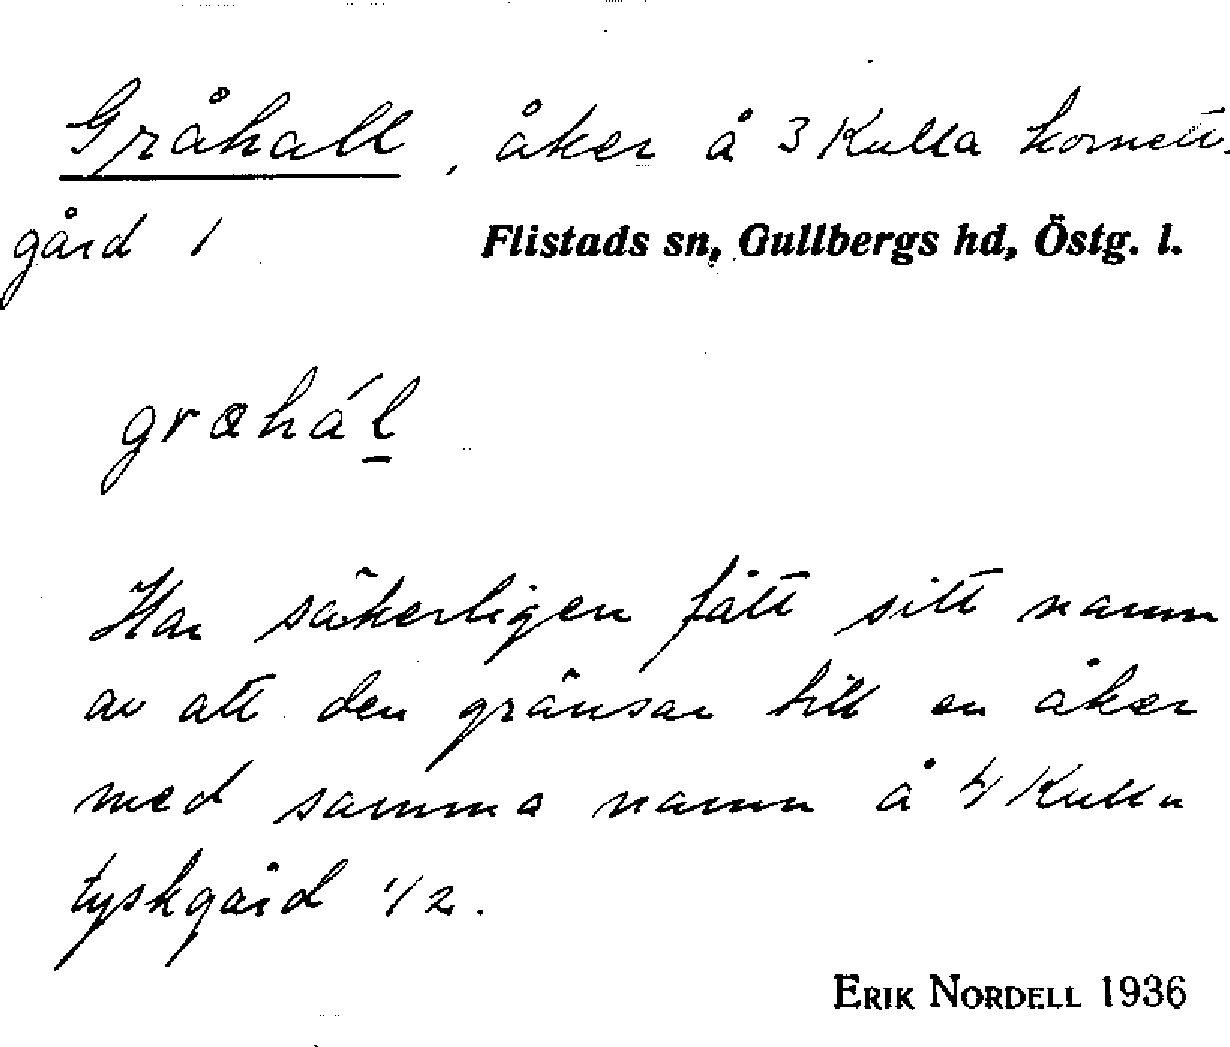 Gråhall, åker å 3 Kulla kornett-
gård 1 Flistads sn, Gullbergs hd, Östg. l.
grɑhál̲
Har säkerligen fått sitt namn
av att den gränsar till en åker
med samma namn å 4 Kulla
tyskgård 1/2.
ERIK NORDELL 1936